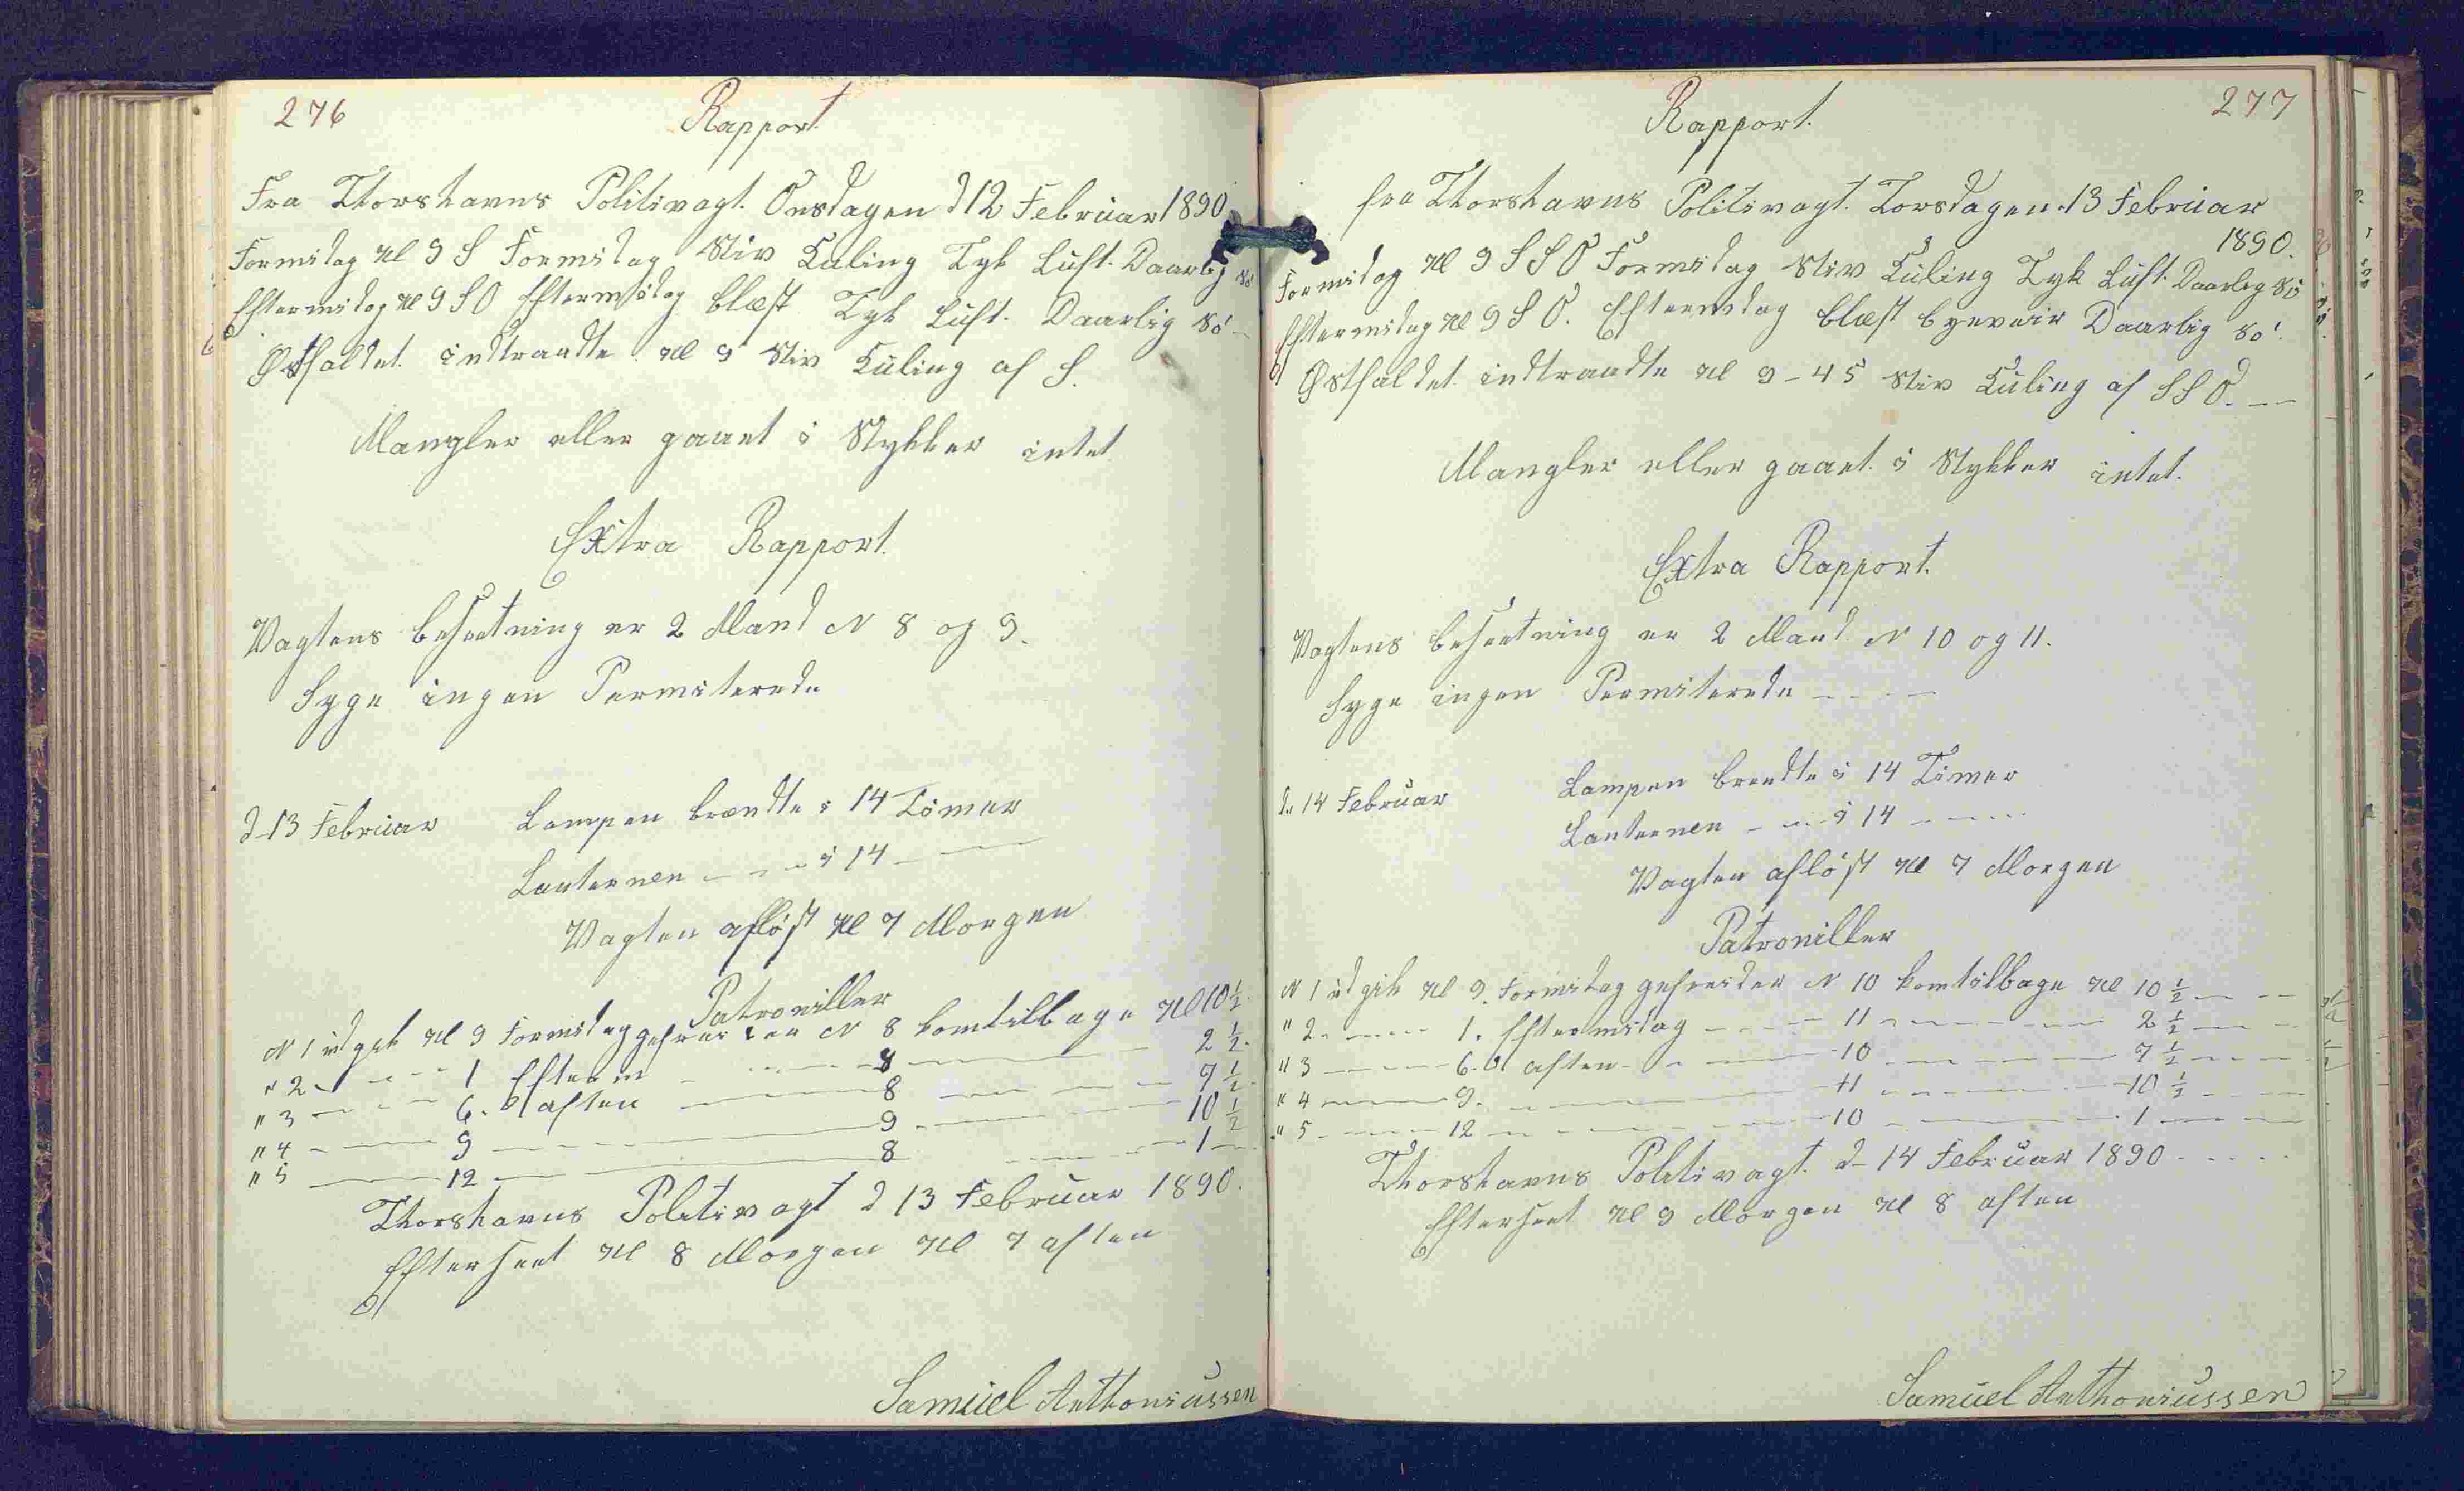 276
Rapport
Fra Thorshavns Politivagt. Onsdagen d 12 Februar 1890
Formidag Kl 9 S Formidag Stiv Kuling Tyk Luft. Daarlig Sö
Eftermidag Kl 9 S O Eftermidag blæst Tyk Luft. Daarlig Sö
Østfaldet. indtraadte Kl 9 Stiv Kuling af S.
Mangler eller gaaet i Stykker intet
Extra Rapport.
Vagtens besætning er 2 Mand N 8 og 9.
Syge ingen Permiterede
d 13 Februar Lampen brændte i 14 Timer
Lanternen — — i 14 —
Vagten aflöst Kl 7 Morgen
Patroniller
N 1 udgik Kl 9 Formidag gefreider N 8 komtilbage Kl 10 ½
" 2 — 1 Efterm — 8 — 2 ½
" 3 — 6. aften — 8 — 7 ½
" 4 — 9 — 9 — 10 ½
" 5 — 12 — 8 — 1
Thorshavns Politivagt d 13 Februar 1890.
Efterseet Kl 8 Morgen Kl 7 aften
Samuel Anthoniussen
277
Rapport.
fra Thorshavns Politivagt. Torsdagen. 13 Februar
1890.
Formidag Kl 9 S S O Formidag Stiv Kuling Tyk Luft. Daarlig Sö
Eftermidag Kl 9 S O. Eftermidag blæst byevair Daarlig Sö.
Østfaldet. indtraadte Kl 9-45 Stiv Kuling af S S O.
Mangler eller gaaet. i Stykker intet.
Extra Rapport.
Vagtens besætning er 2 Mand N 10 og 11.
Syge ingen Permiterede — —
d. 14 Februar Lampen brendte i 14 Timer
Lanternen — — i 14 —
Vagten aflöst Kl 7 Morgen
Patroniller
N 1 udgik Kl 9. Formidag gefreider N 10 komtilbage Kl 10 ½
" 2 — 1. Eftermidag — 11 — 2 ½
" 3 — 6. aften — 10 — 7 ½
" 4 — 9. — 11 — 10 ½
" 5 — 12 — 10 — 1
Thorshavns Politivagt. d 14 Februar 1890
Efterseet Kl 9 Morgen Kl 8 aften
Samuel Anthoniussen